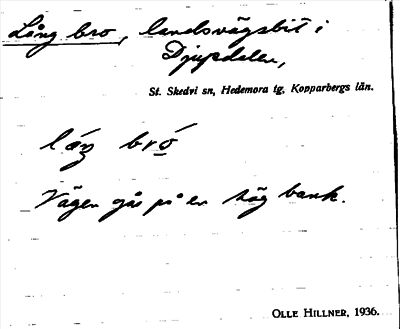 Lång bro, landsvägsbit i
Djupdalen,
St. Skedvi sn, Hedemora tg, Kopparbergs län.
Vägen går på en hög bank.
OLLE HILLNER, 1936.